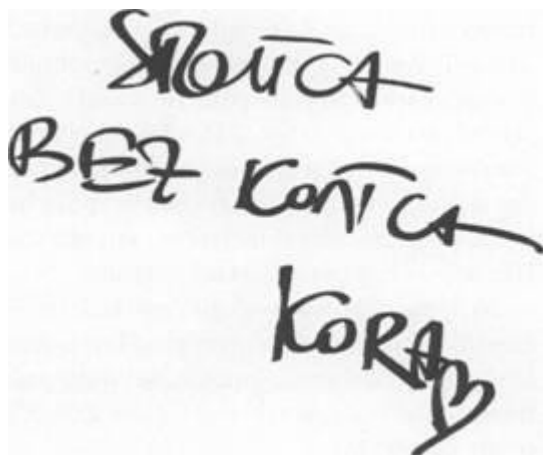 SŁOŃCA
BEZ KOŃCA
KORAB